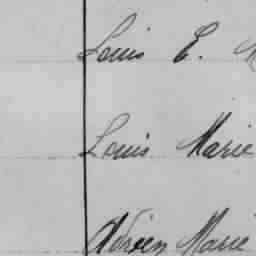 Louis E. M
Louis Marie
Adrien Marie